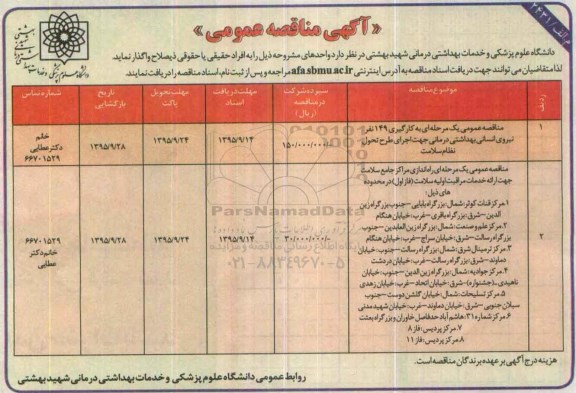 م الف / ۲۴۳۱
« آگهی مناقصه عمومی »
دانشگاه علوم پزشکی و خدمات بهداشتی درمانی شهید بهشتی در نظر دارد واحدهای مشروحه ذیل را به افراد حقیقی یا حقوقی ذیصلاح واگذار نماید.
لذا متقاضیان می توانند جهت دریافت اسناد مناقصه به آدرس اینترنتی afa.sbmu.ac.ir مراجعه و پس از ثبت نام، اسناد مناقصه را دریافت نمایند.
ردیف
موضوع مناقصه
سپرده شرکت در مناقصه (ریال)
مهلت دریافت اسناد
مهلت تحویل پاکت
تاریخ بازگشایی
شماره تماس
۱
مناقصه عمومی یک مرحله ای به کارگیری ۱۴۹ نفر
نیروی انسانی بهداشتی درمانی جهت اجرای طرح تحول
نظام سلامت
۱۵۰/۰۰۰/۰۰۰
۱۳۹۵/۹/۱۴
۱۳۹۵/۹/۲۴
۱۳۹۵/۹/۲۸
خانم
دکتر عطایی
۶۶۷۰۱۵۲۹
۲
مناقصه عمومی یک مرحله ای راه اندازی مراکز جامع سلامت
جهت ارائه خدمات مراقبت اولیه سلامت (فاز اول) در محدوده
های ذیل:
۱. مرکز قنات کوثر: شمال: بزرگراه بابایی - جنوب بزرگراه زین
الدین - شرق: بزرگراه باقری - غرب: خیابان هنگام
۲. مرکز علم و صنعت: شمال: بزرگراه زین العابدین - جنوب:
بزرگراه رسالت - شرق: خیابان سراج - غرب: خیابان هنگام
۳. مرکز ترمینال شرق: شمال: بزرگراه رسالت - جنوب: خیابان
دماوند - شرق: بزرگراه رسالت - غرب: خیابان دردشت
۴. مرکز جوادیه: شمال: بزرگراه زین الدین - جنوب: خیابان
ناهیدی (جشنواره) - شرق: خیابان اتحاد - غرب: خیابان زهدی
۵. مرکز تسلیحات: شمال: خیابان گلشن دوست - جنوب
سبلان جنوبی - شرق: خیابان دماوند - غرب: خیابان شهید مدنی
۶. مرکز شماره ۳۱: هاشم آباد حدفاصل خاوران و بزرگراه بعثت
۷. مرکز پردیس: فاز ۸
۸. مرکز پردیس: فاز ۱۱
۳۰/۰۰۰/۰۰۰
۱۳۹۵/۹/۱۴
۱۳۹۵/۹/۲۴
۱۳۹۵/۹/۲۸
۶۶۷۰۱۵۲۹
خانم دکتر
عطایی
ParsNamadData
پایگاه اطلاع رسانی مناقصه و مزایده
۰۲۱-۸۸۳۴۹۶۷۰-۵
هزینه درج آگهی بر عهده برندگان مناقصه است.
روابط عمومی دانشگاه علوم پزشکی و خدمات بهداشتی درمانی شهید بهشتی